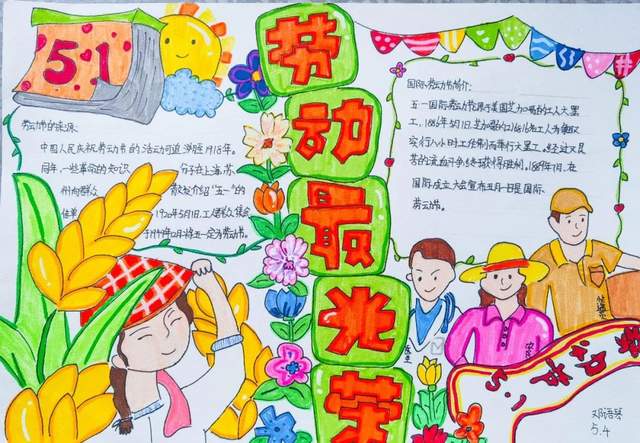 5.1
劳动最光荣
劳动节的来源:
中国人民庆祝劳动节的活动可追溯至1918年。
同年,一些革命的知识 分子在上海、苏
州向群众 散发介绍"五一"的
1920年5月1日,工人群众集会
于1949年12月将五一定为劳动节。
国际劳动节简介:
五一国际劳动节源于美国芝加哥的工人大罢
工,1886年5月1日,芝加哥的216816名工人为争取
实行八小时工作制而举行大罢工。经过艰
苦的流血斗争,终于获得胜利。1889年7月,在
国际成立大会宣布五月一日是国际
劳动节。
5.1
邓语琴
5.4